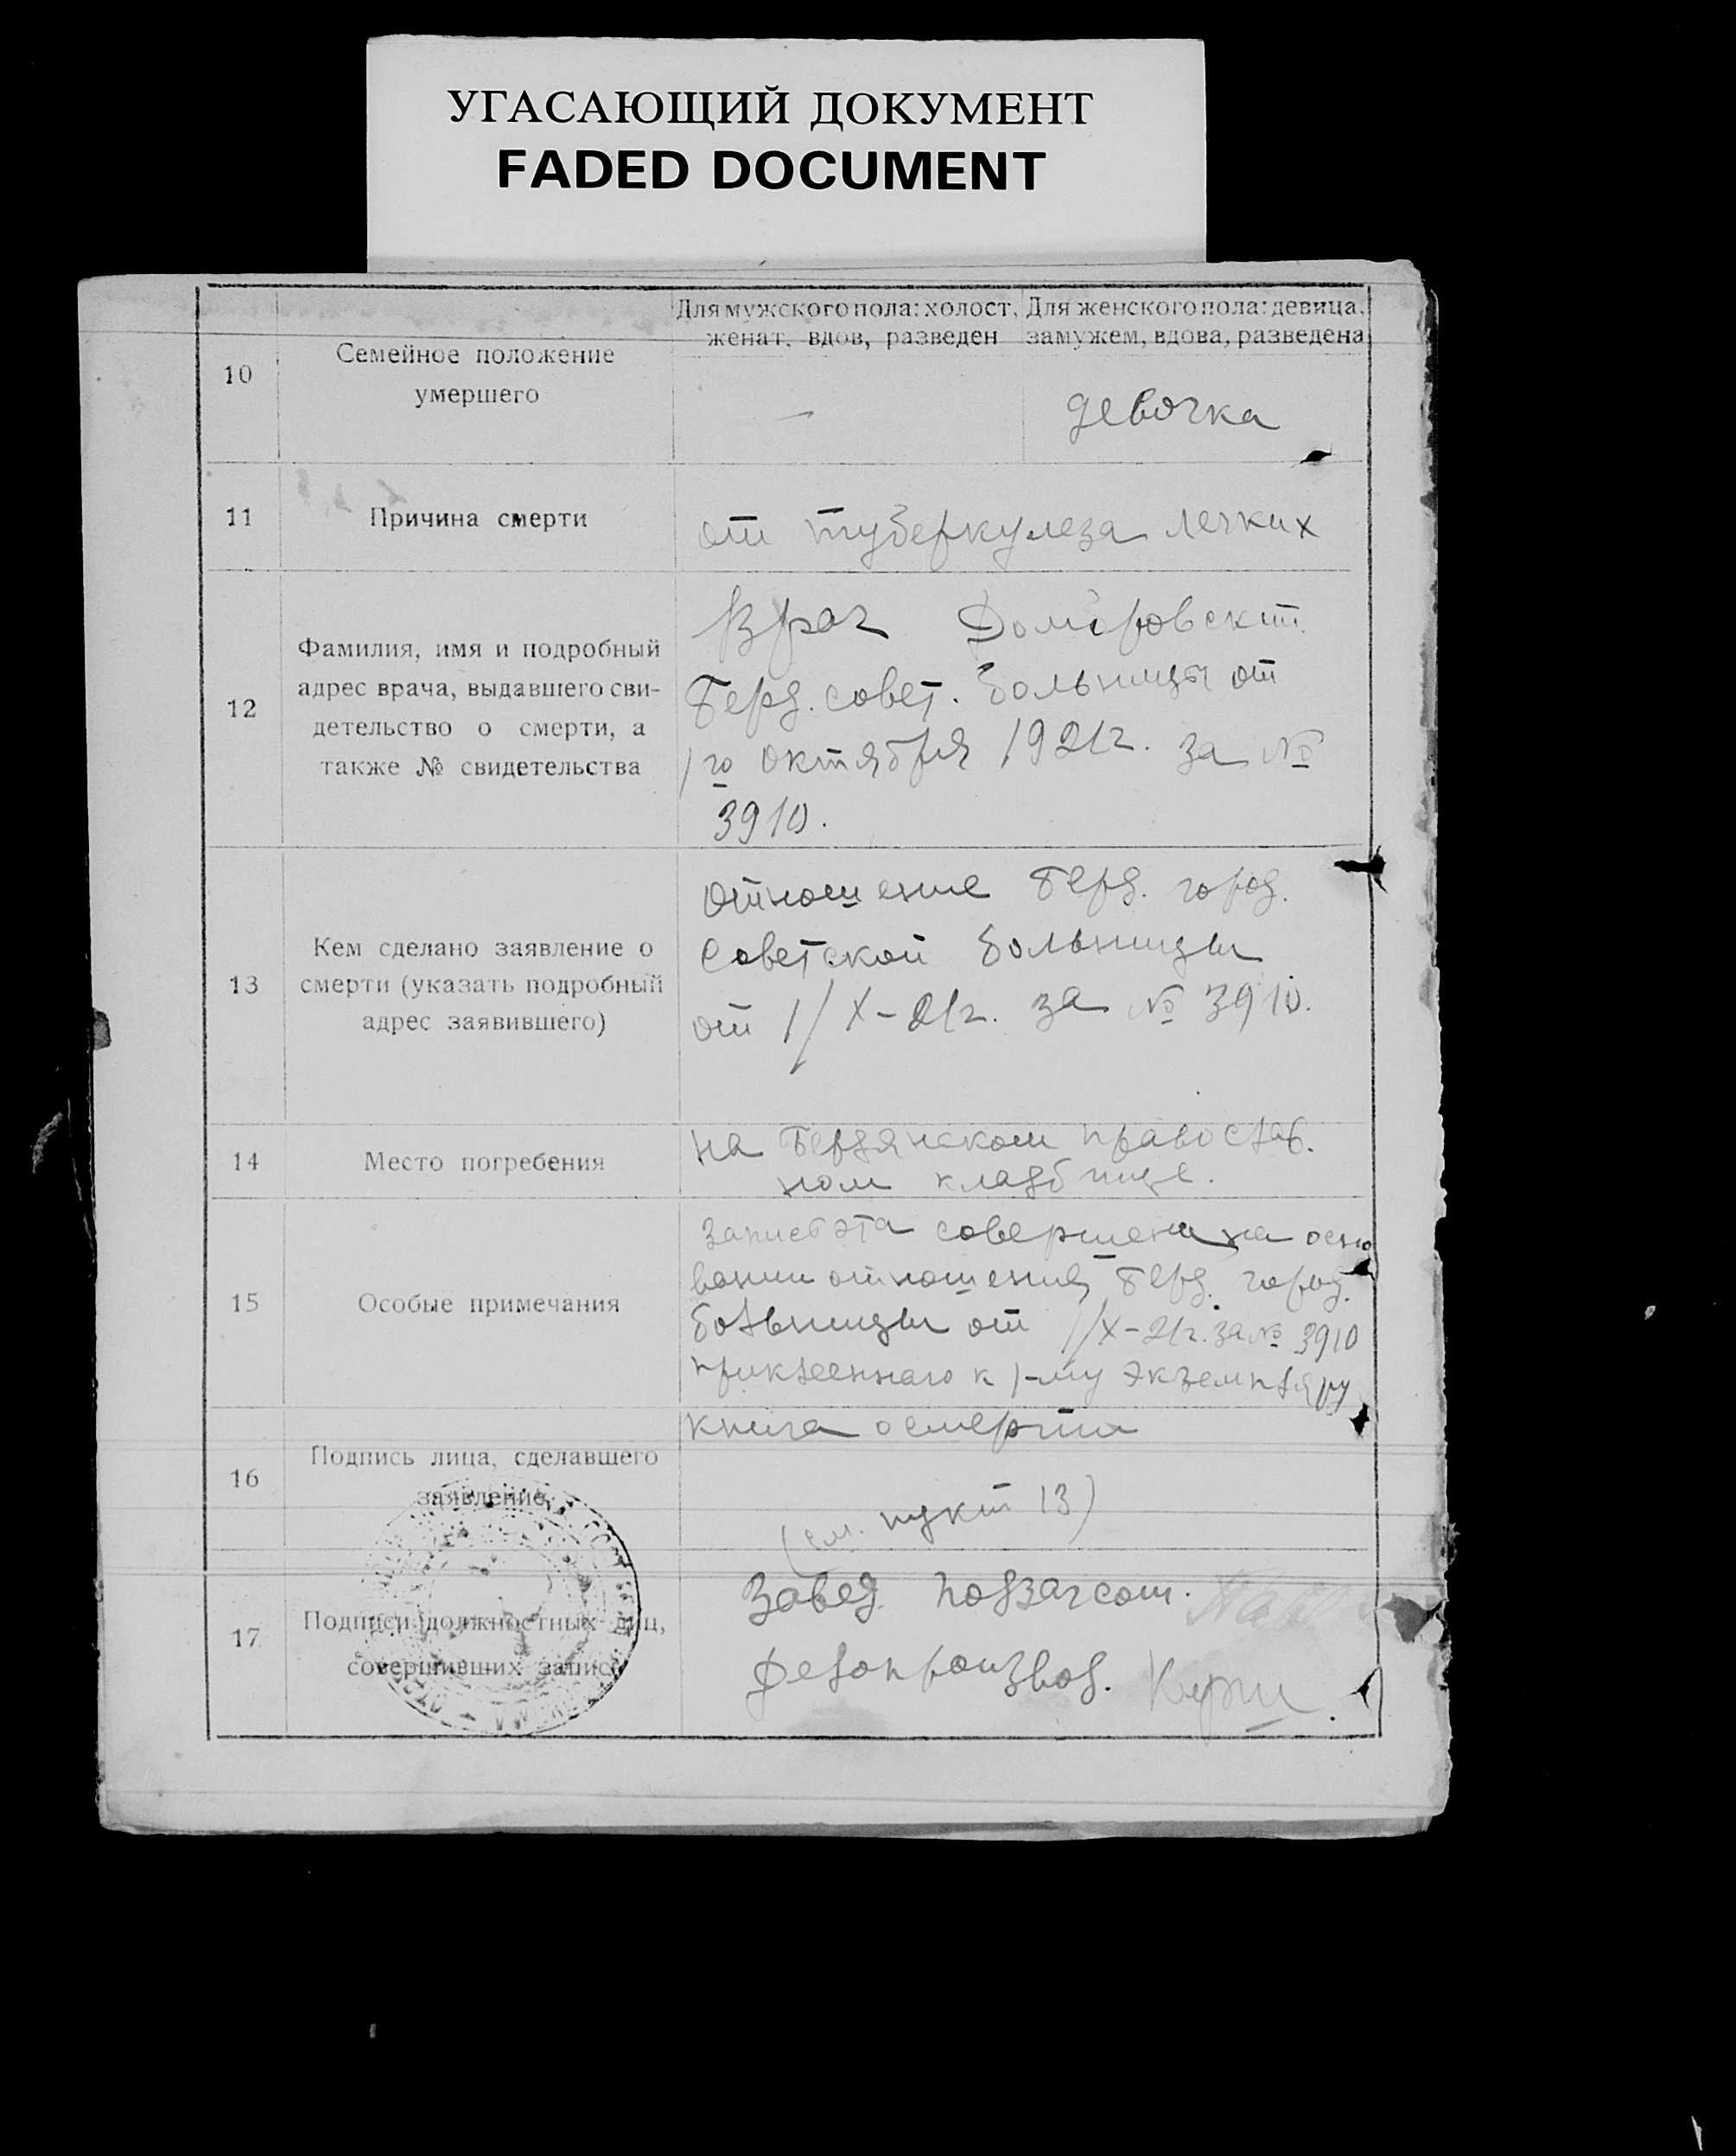 УГАСАЮЩИЙ ДОКУМЕНТ
FADED DOCUMENT
10
Семейное положение
умершего
Для мужского пола: холост,
женат, вдов, разведен
Для женского пола: девица,
замужем, вдова, разведена
—
девочка
11
Причина смерти
от туберкулеза легких
12
Фамилия, имя и подробный
адрес врача, выдавшего сви-
детельство о смерти, а
также № свидетельства
Врач
Берд. совет. больницы от
1го октября 1921г. за №
3910.
13
Кем сделано заявление о
смерти (указать подробный
адрес заявившего)
Отношение Берд. город.
Советской больницы
от 1/X-21г. за № 3910.
14
Место погребения
на Бердянском православ.
ном кладбище.
15
Особые примечания
Запись эта совершена на осно
вании отношения Берд. город.
больницы от 1/X-21г. за № 3910
приклееннаго к 1-му экземпляру
книга о смерти
16
Подпись лица, сделавшего
заявление
(см. пункт 13)
17
Подписи должностных лиц,
совершивших запись
Завед. подзагсом.
Делопроизвод.